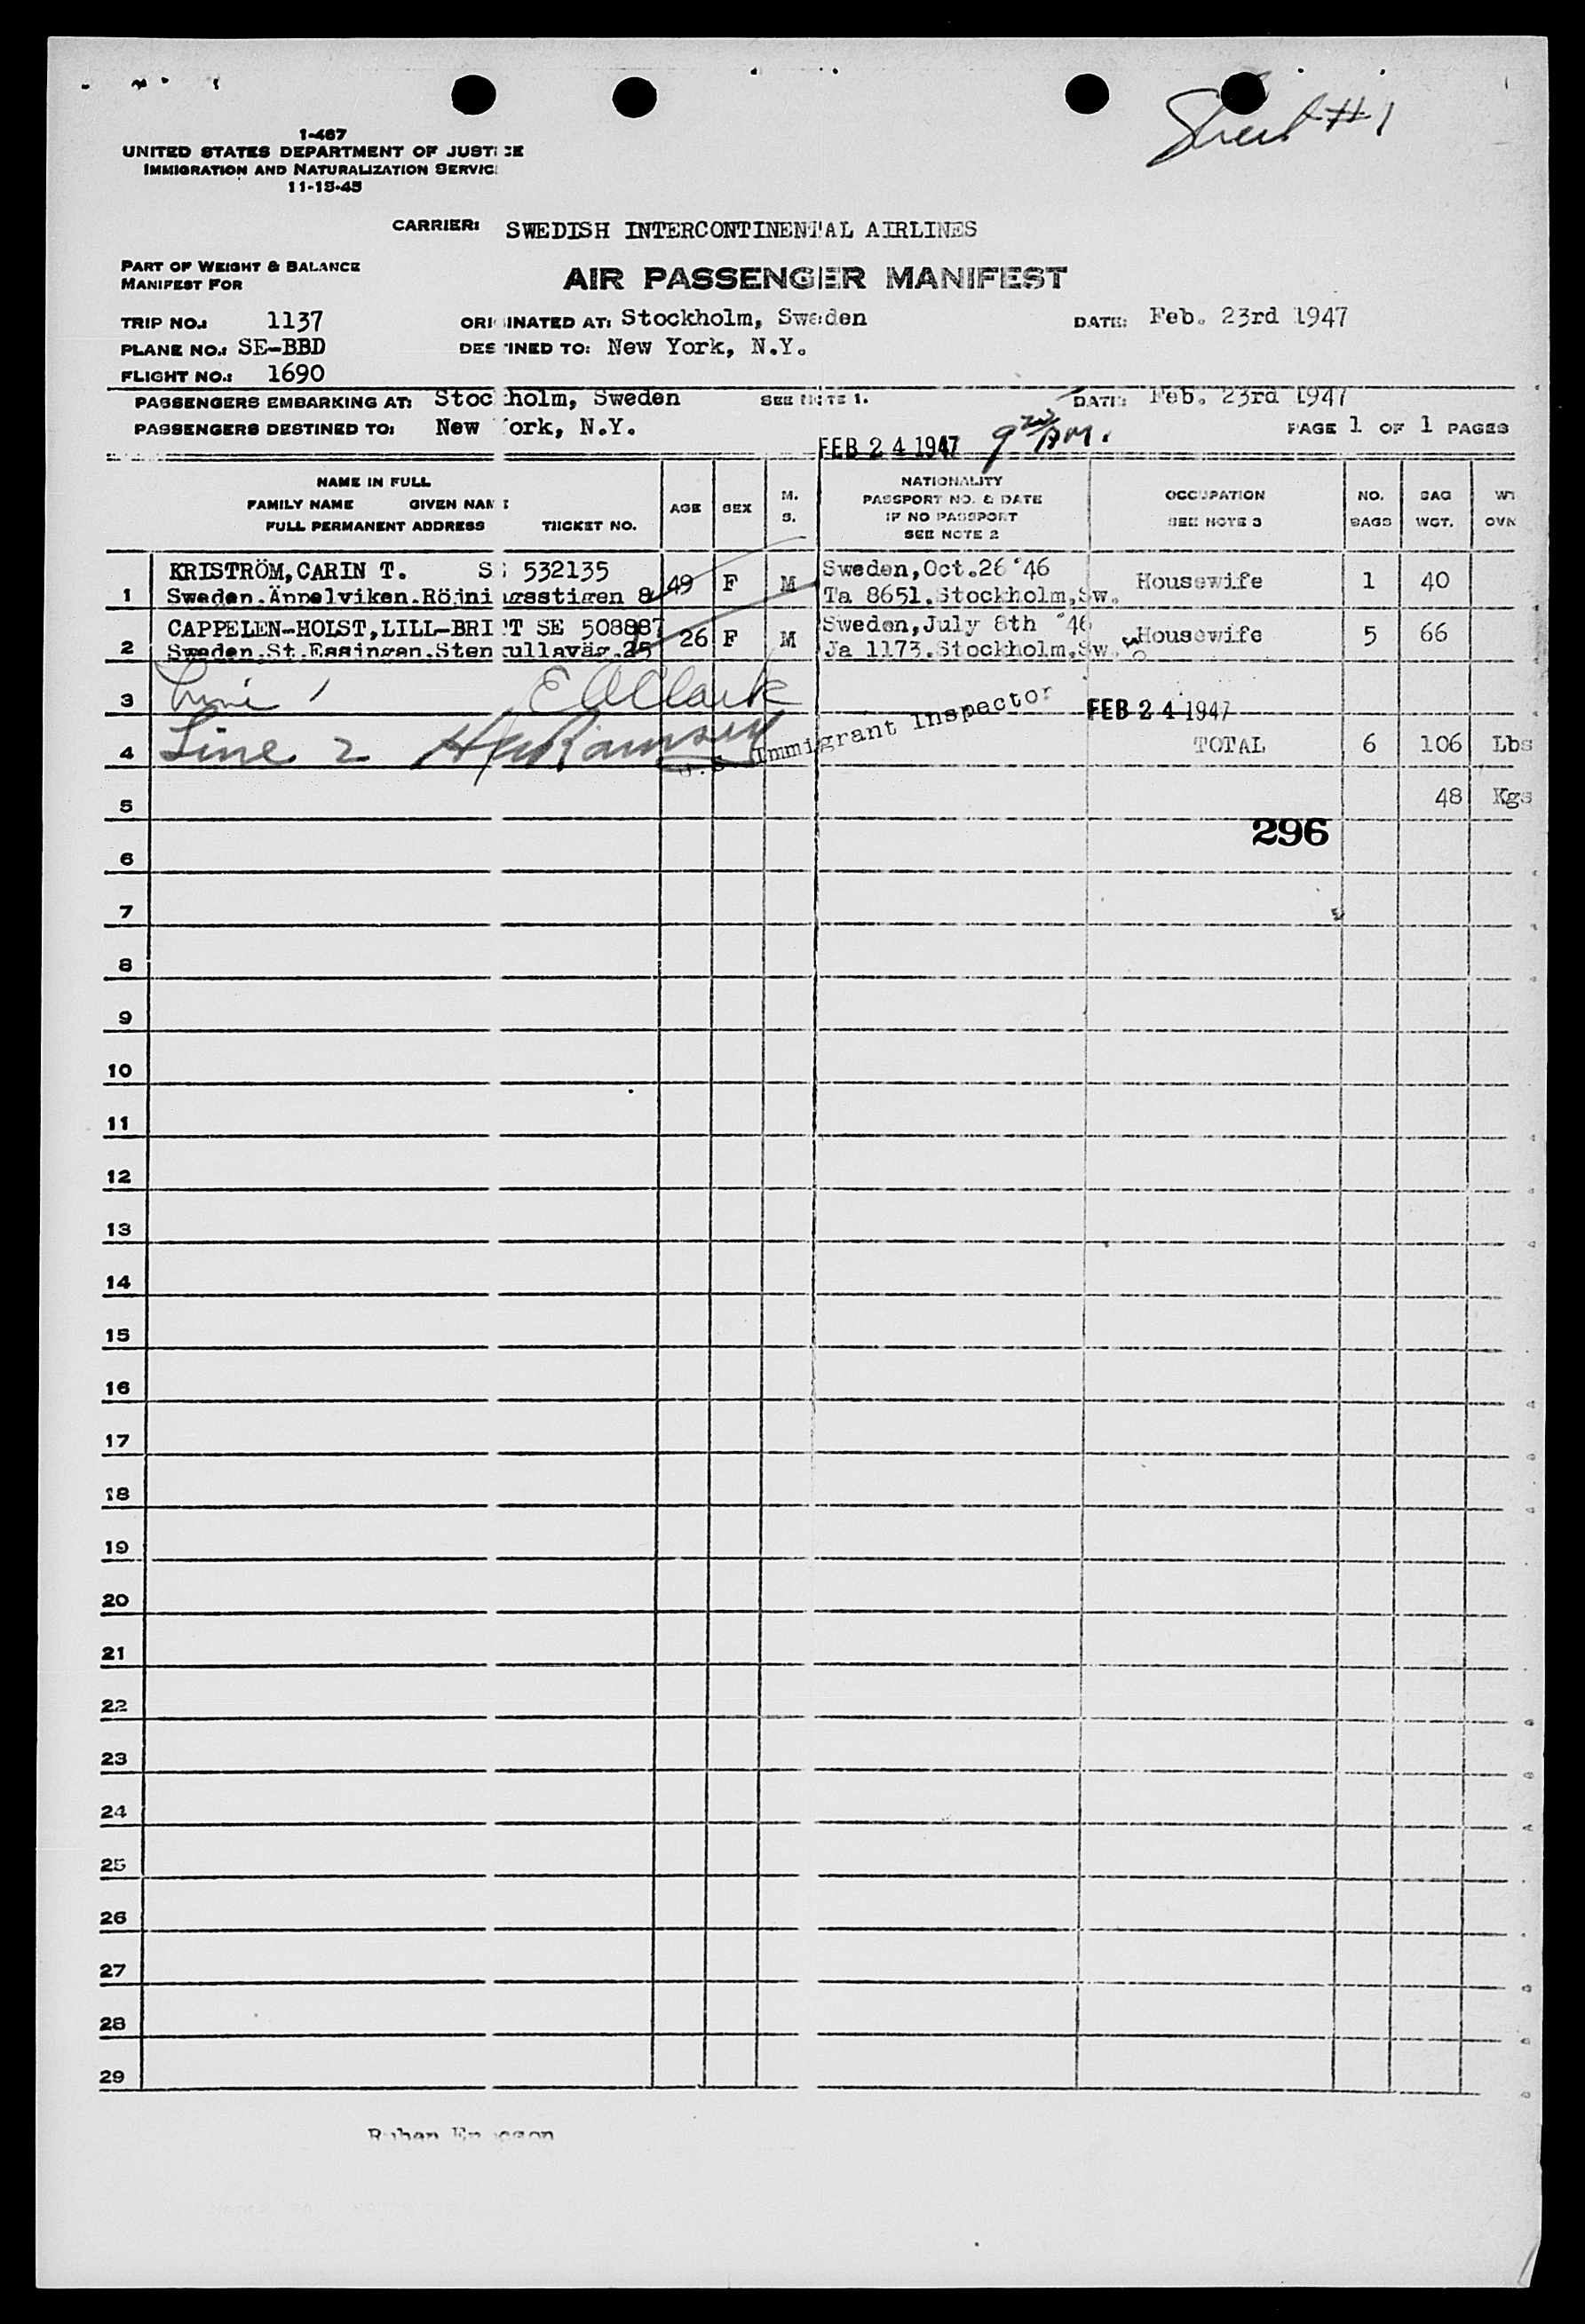 Sheet #1
1-467
UNITED STATES DEPARTMENT OF JUSTICE
IMMIGRATION AND NATURALIZATION SERVICE
11-15-45
CARRIER: SWEDISH INTERCONTINENTAL AIRLINES
PART OF WEIGHT & BALANCE
MANIFEST FOR
AIR PASSENGER MANIFEST
TRIP NO.: 1137 ORIGINATED AT: Stockholm, Sweden DATE: Feb. 23rd 1947
PLANE NO.: SE-BBD DESTINED TO: New York, N.Y.
FLIGHT NO.: 1690
PASSENGERS EMBARKING AT: Stockholm, Sweden SEE NOTE 1. DATE: Feb. 23rd 1947
PASSENGERS DESTINED TO: New York, N.Y. PAGE 1 OF 1 PAGES
FEB 24 1947 AM.
NAME IN FULL
FAMILY NAME GIVEN NAME
FULL PERMANENT ADDRESS TICKET NO.
AGE SEX M. S.
NATIONALITY
PASSPORT NO. & DATE
IF NO PASSPORT
SEE NOTE 2
OCCUPATION
SEE NOTE 3
NO. BAGS
BAG WGT.
WT OVN
1 KRISTRÖM, CARIN T. SE 532135 49 F M Sweden, Oct. 26 '46 Housewife 1 40
Sweden. Äppelviken. Röjningsstigen 8 Ta 8651. Stockholm, Sw.
2 CAPPELEN-HOLST, LILL-BRITT SE 508887 26 F M Sweden, July 8th '46 Housewife 5 66
Sweden. St. Essingen. Stenkullaväg. 25 Ja 1173. Stockholm, Sw.
3 Line 1 E A Clark FEB 24 1947
4 Line 2 Ramsey U.S. Immigrant Inspector TOTAL 6 106 Lbs
5 48 Kgs
296
6
7
8
9
10
11
12
13
14
15
16
17
18
19
20
21
22
23
24
25
26
27
28
29